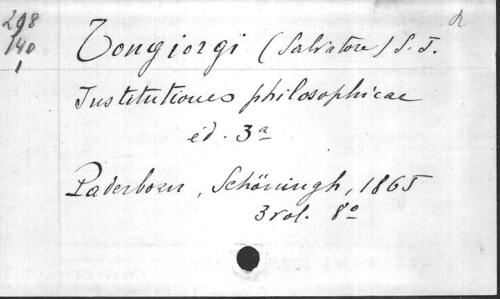 298
140
1
R
Tongiorgi (Salvatore) S. J.
Institutiones philosophicae
éd. 3ª
Paderborn, Schöningh, 1865
3 vol. 8º